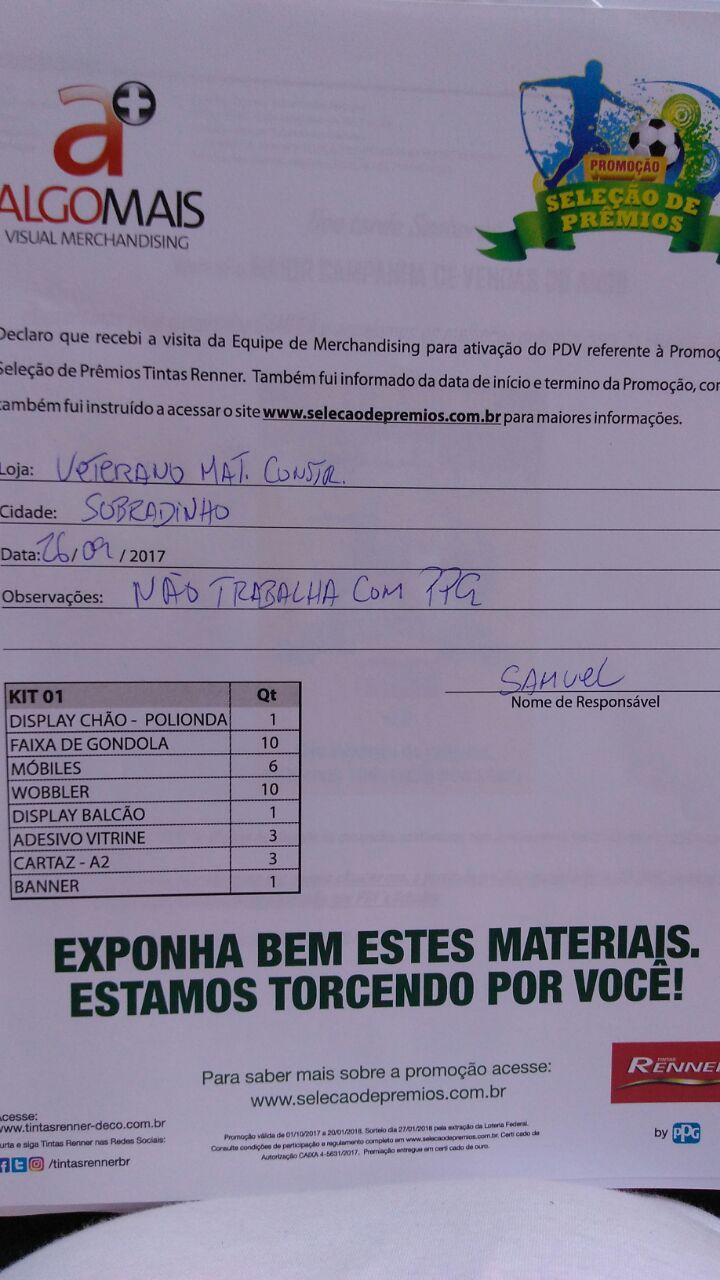 a+
ALGOMAIS
VISUAL MERCHANDISING
PROMOÇÃO
SELEÇÃO DE
PRÊMIOS
Declaro que recebi a visita da Equipe de Merchandising para ativação do PDV referente à Promoç
Seleção de Prêmios Tintas Renner. Também fui informado da data de início e termino da Promoção, com
também fui instruído a acessar o site www.selecaodepremios.com.br para maiores informações.
Loja: VETERANO MAT. CONSTR.
Cidade: SOBRADINHO
Data: 26/09/2017
Observações: NÃO TRABALHA COM PPG
SAMUEL
Nome de Responsável
KIT 01 Qt
DISPLAY CHÃO - POLIONDA 1
FAIXA DE GONDOLA 10
MÓBILES 6
WOBBLER 10
DISPLAY BALCÃO 1
ADESIVO VITRINE 3
CARTAZ - A2 3
BANNER 1
EXPONHA BEM ESTES MATERIAIS.
ESTAMOS TORCENDO POR VOCÊ!
Para saber mais sobre a promoção acesse:
www.selecaodepremios.com.br
TINTAS
RENNER
by PPG
Acesse:
www.tintasrenner-deco.com.br
urta e siga Tintas Renner nas Redes Sociais:
/tintasrennerbr
Promoção válida de 01/10/2017 a 20/01/2018. Sorteio dia 27/01/2018 pela extração da Loteria Federal.
Consulte condições de participação e regulamento completo em www.selecaodepremios.com.br. Certi cado de
Autorização CAIXA 4-5631/2017. Premiação entregue em certi cado de ouro.